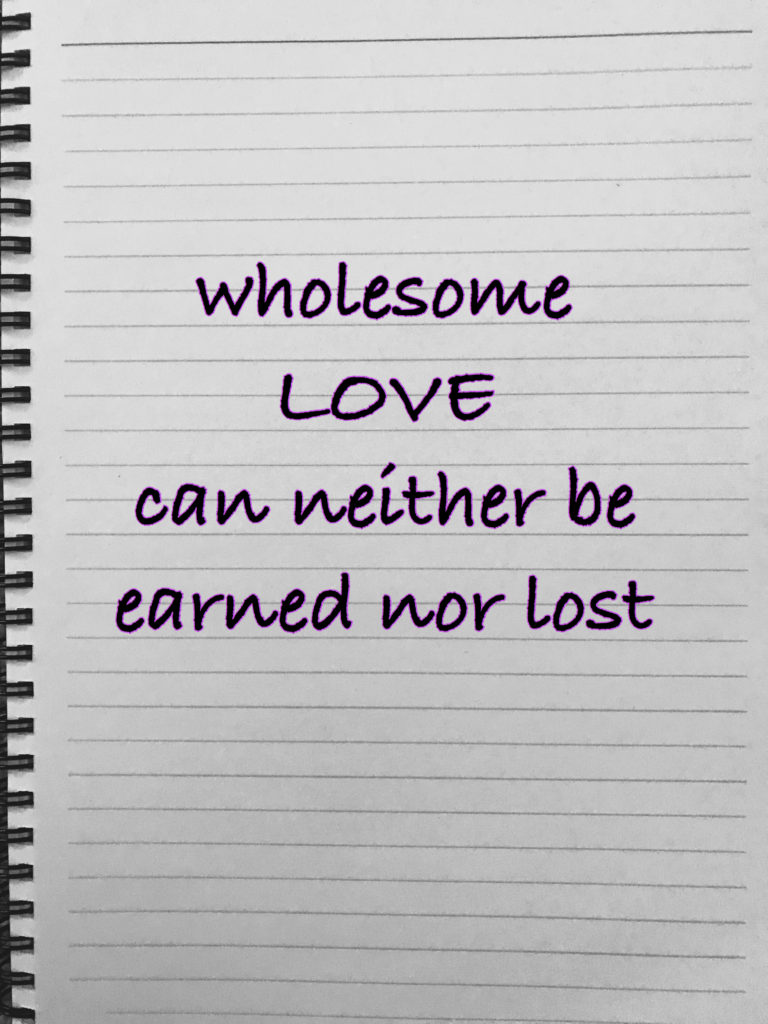 wholesome
LOVE
can neither be
earned nor lost